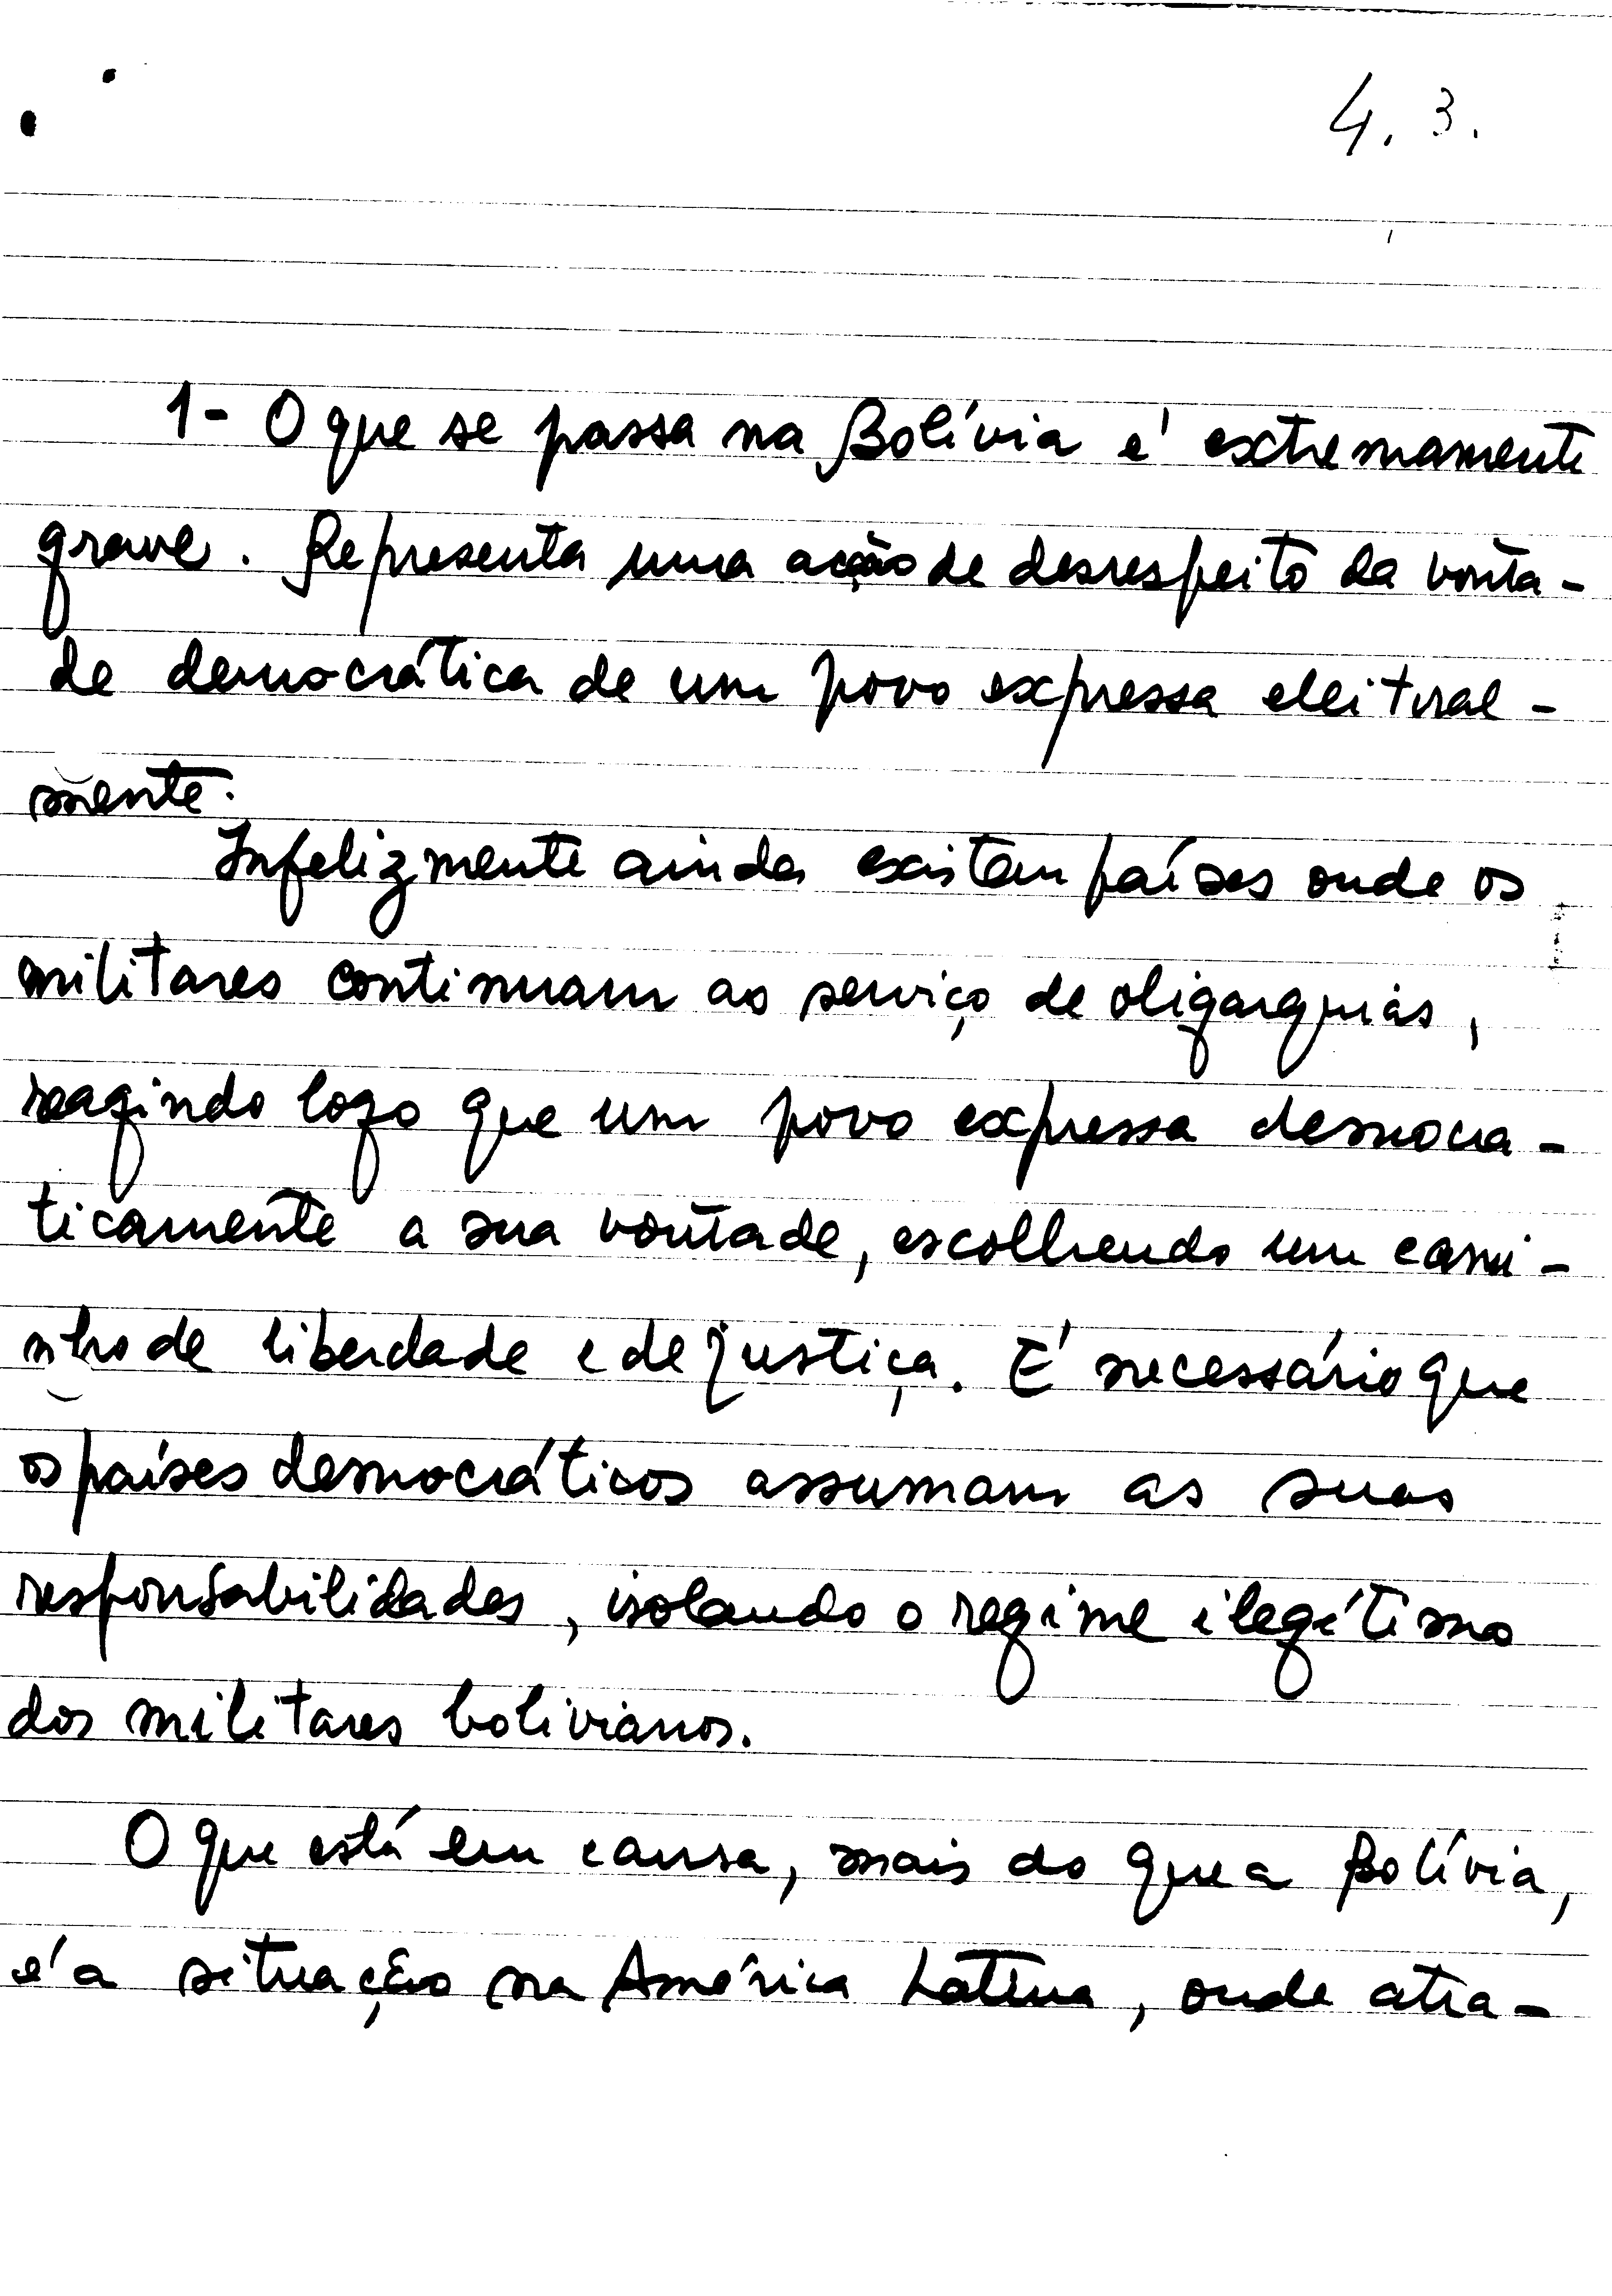 4.3.
1- O que se passa na Bolívia é extremamente
grave. Representa uma acção de desrespeito da vonta-
de democrática de um povo expressa eleitoral-
mente.
Infelizmente ainda existem países onde os
militares continuam ao serviço de oligarquias,
reagindo logo que um povo expressa democra-
ticamente a sua vontade, escolhendo um cami-
nho de liberdade e de justiça. É necessário que
os países democráticos assumam as suas
responsabilidades, isolando o regime ilegítimo
dos militares bolivianos.
O que está em causa, mais do que a Bolívia,
é a situação na América Latina, onde atra-